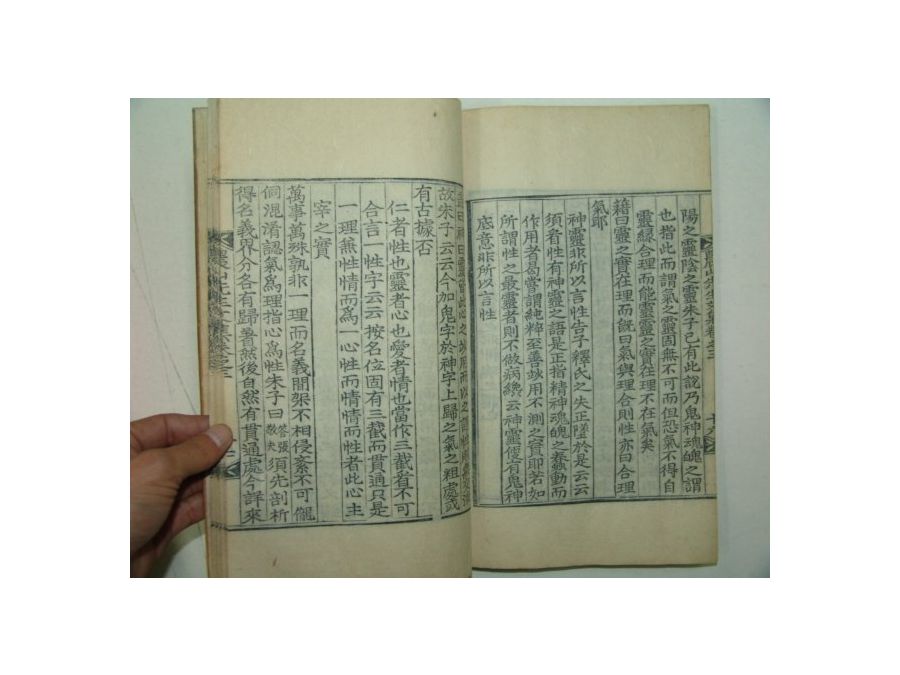 陽之靈陰之靈朱子已有此說乃鬼神魂魄之謂
也指此而謂氣之靈固無不可而但恐氣不得自
靈線合理而能靈靈之實在理不在氣矣
籍曰靈之實在理而旣曰氣與理合則性亦曰合理
氣耶
神靈非所以言性告子釋氏之失正墜於是云云
須看性有神靈之語是正指精神魂魄之蠢動而
作用者曷嘗謂純粹至善妙用不測之實耶若如
所謂性之最靈者則不做病纔云神靈便有鬼神
底意非所以言性
故朱子云云今加鬼字於神字上歸之氣之粗處或
有古據否
仁者性也靈者心也愛者情也當作三截看不可
合言一性字云云按名位固有三截而貫通只是
一理無性情而爲一心性而情情而性者此心主
宰之實
萬事萬殊孰非一理而名義間架不相侵紊不可儱
侗混淆認氣爲理指心爲性朱子曰答張敬夫須先剖析
得名義界分各有歸著然後自然有貫通處今詳來